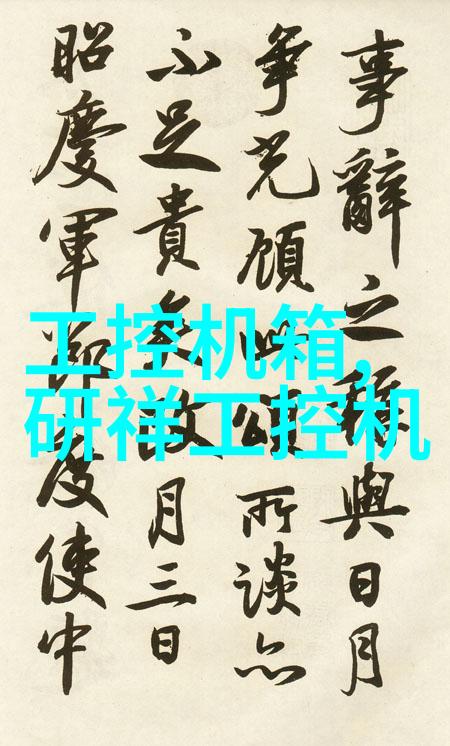 事辭之與日月
爭光顧此頌所談亦
不足貴政月三日
昭慶軍節度使中
工控机箱,
研祥工控机